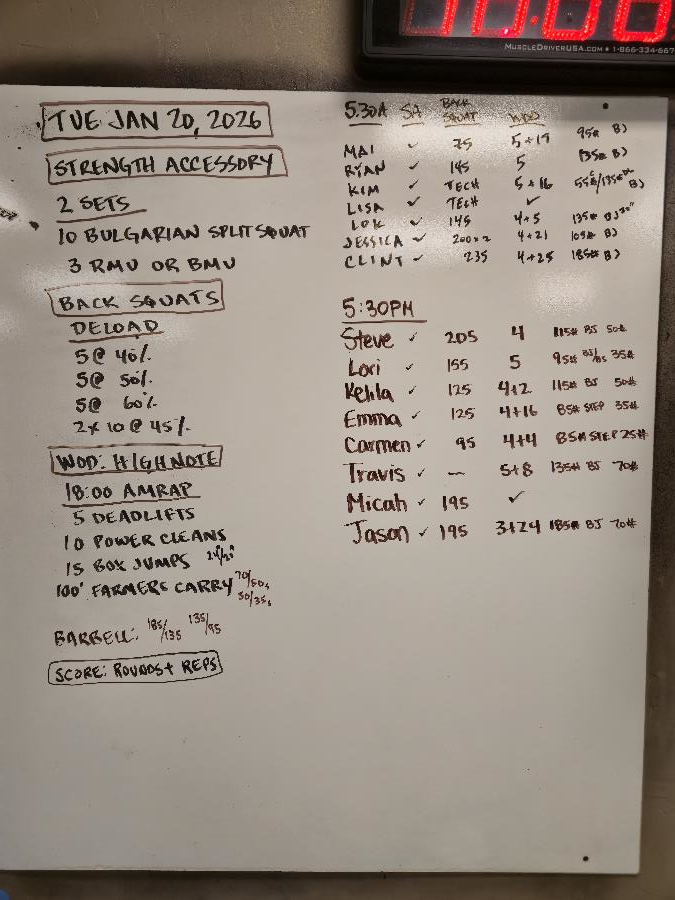 MUSCLEDRIVERUSA.COM • 1-866-334-667
TUE JAN 20, 2026
STRENGTH ACCESSORY
2 SETS
10 BULGARIAN SPLIT SQUAT
3 RMU OR BMU
BACK SQUATS
DELOAD
5 @ 40%
5@ 50%
5@ 60%
2 x 10 @ 45%
WOD: HIGH NOTE
18:00 AMRAP
5 DEADLIFTS
10 POWER CLEANS
15 BOX JUMPS 24/20"
100' FARMERS CARRY 70/50#
50/35#
BARBELL: 185/135 135/95
SCORE: ROUNDS + REPS
5:30A SA BACK SQUAT WOD
MAI ✓ 75 5+19 95# BJ
RYAN ✓ 145 5 135# BJ
KIM ✓ TECH 5+16 BJ
LISA ✓ TECH ✓
LOK ✓ 145 4+5 135# BJ 20"
JESSICA ✓ 200x2 4+21 105# BJ
CLINT ✓ 235 4+25 185# BJ
5:30PM
Steve ✓ 205 4 115# BJ 50#
Lori ✓ 155 5 95# BJ/BS 35#
Kehla ✓ 125 4+2 115# BJ 50#
Emma ✓ 125 4+16 85# STEP 35#
Carmen ✓ 95 4+4 85# STEP 25#
Travis ✓ — 5+8 135# BJ 70#
Micah ✓ 195 ✓
Jason ✓ 195 3+24 185# BJ 70#